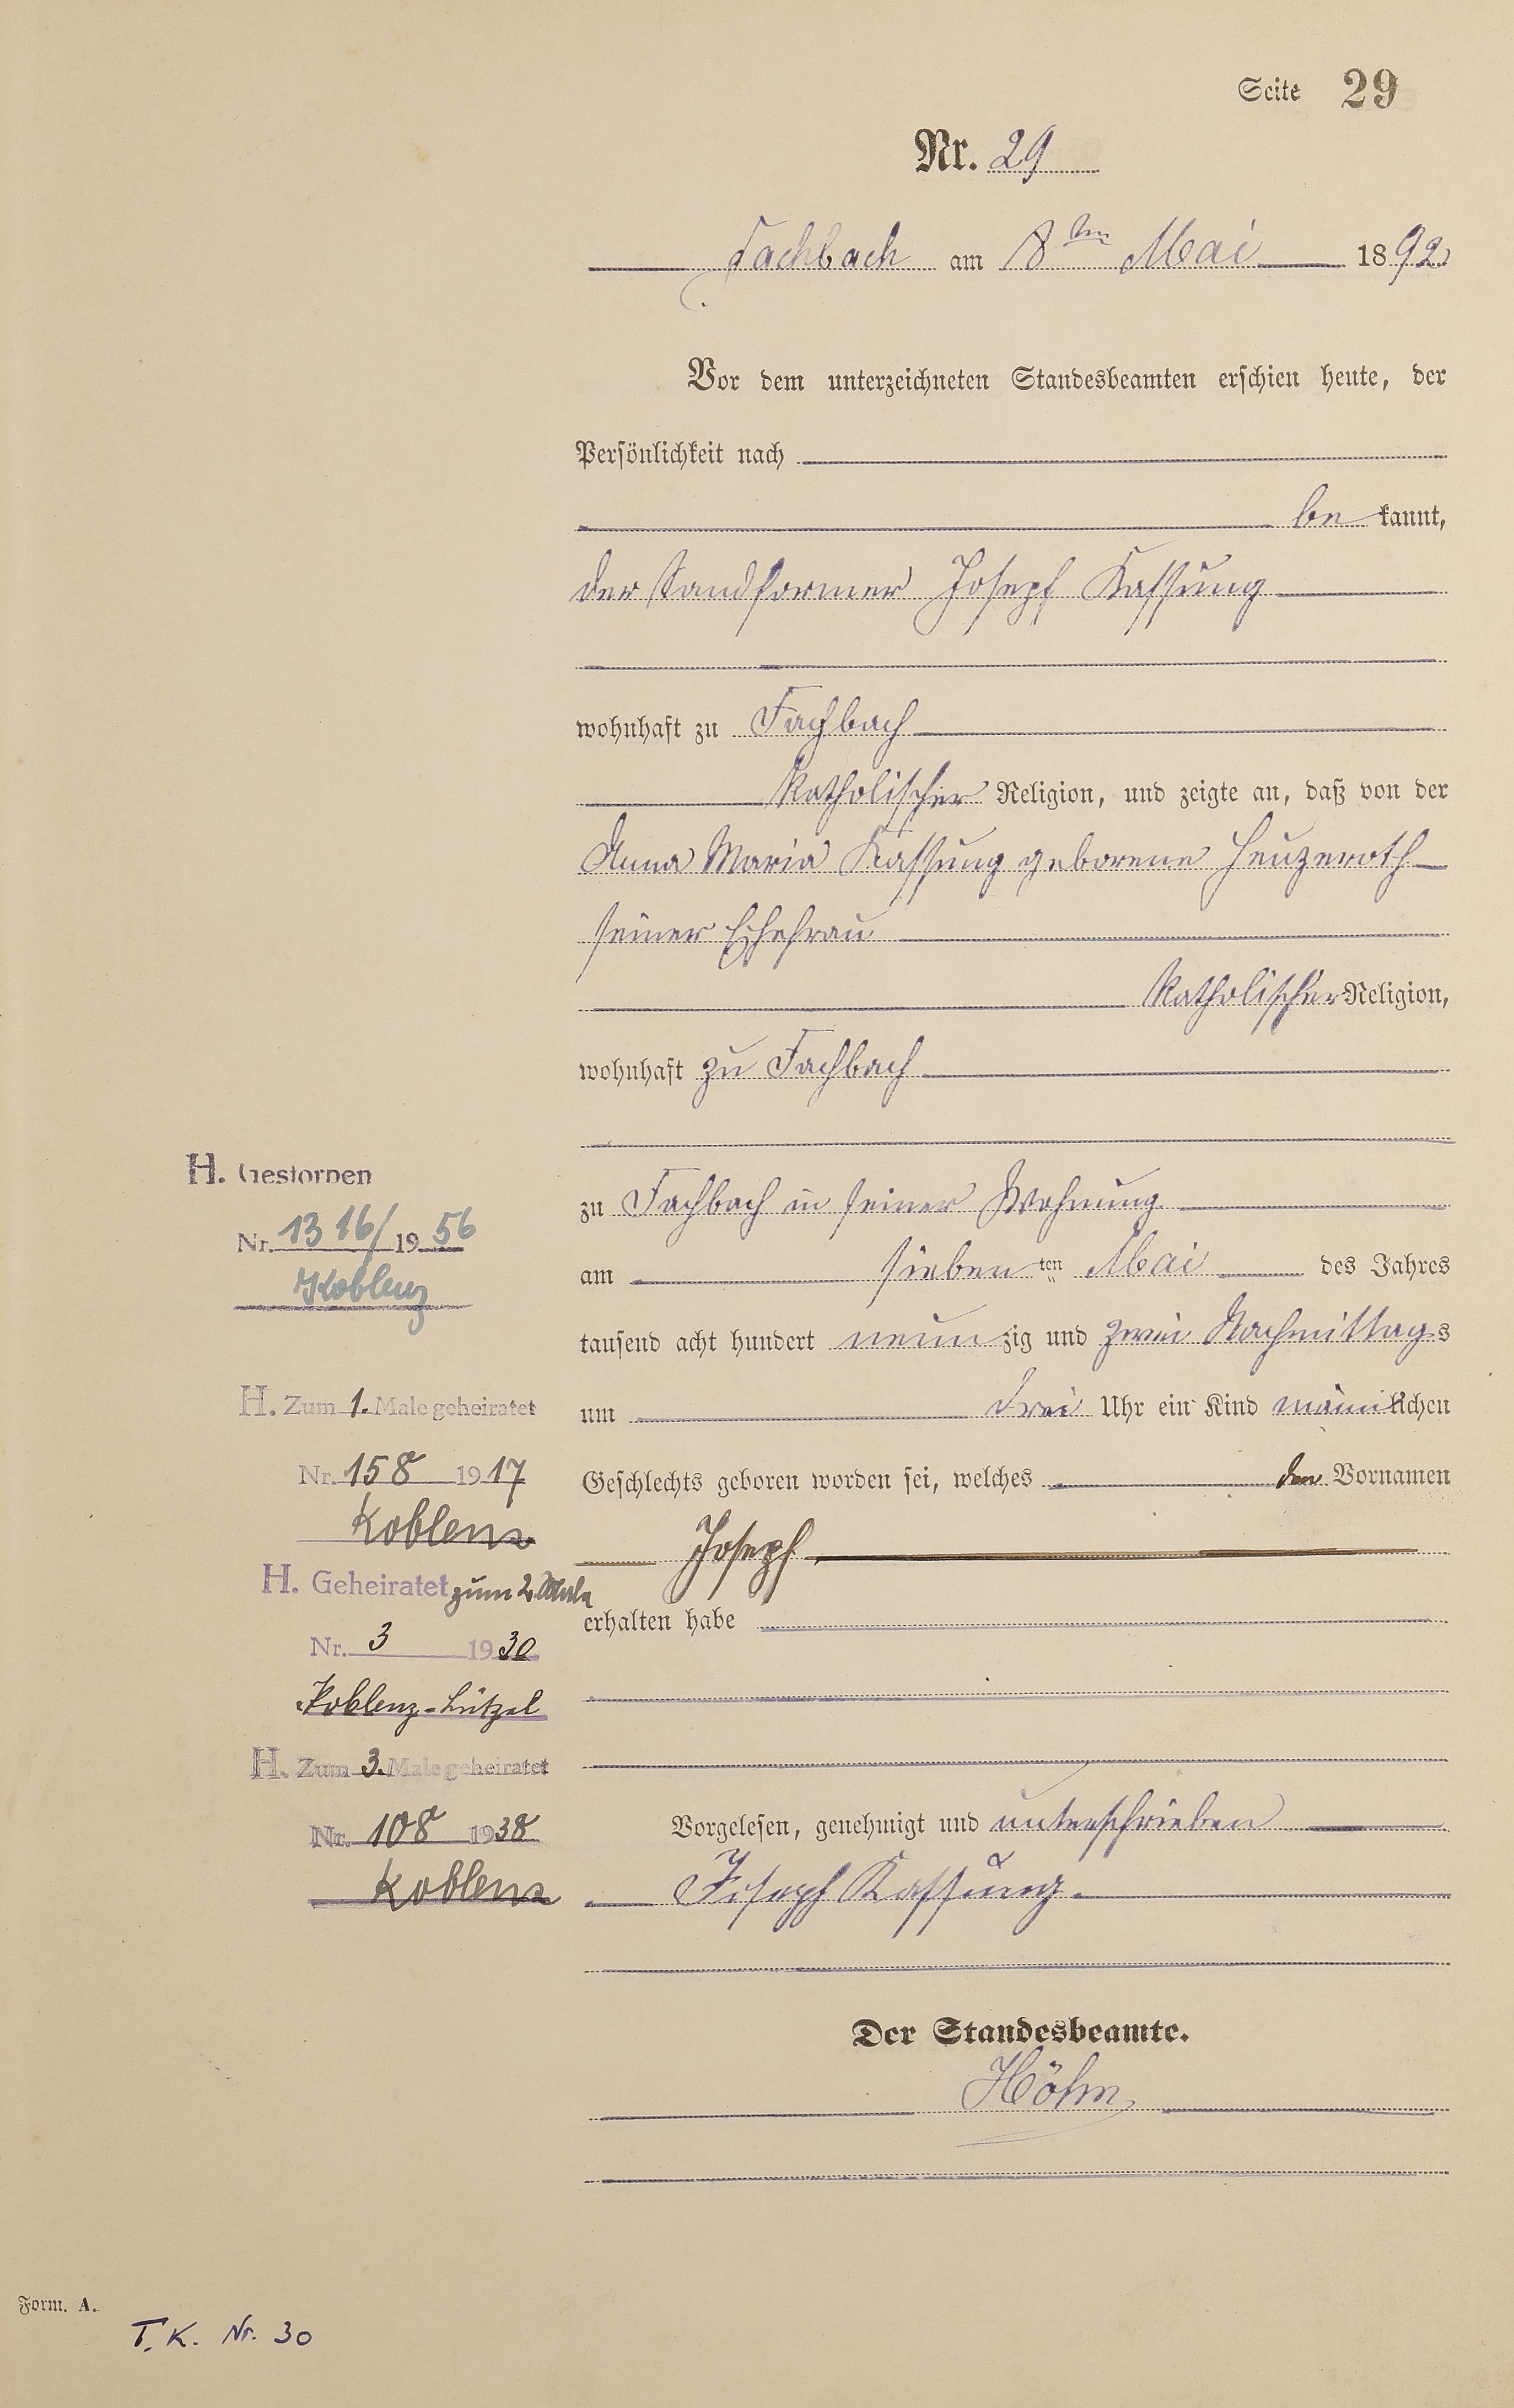 Seite 29
Nr. 29
Fachbach am 8ten Mai 1892
Vor dem unterzeichneten Standesbeamten erschien heute, der
Persönlichkeit nach
be kannt,
der Sandformer Joseph Kassung
wohnhaft zu Fachbach
katholischer Religion, und zeigte an, daß von der
Anna Maria Kassung geborene Heuzeroth
seiner Ehefrau
katholischer Religion,
wohnhaft zu Fachbach
zu Fachbach in seiner Wohnung
am sieben ten Mai des Jahres
tausend acht hundert neun zig und zwei Nachmittags
um drei Uhr ein Kind männlichen
Geschlechts geboren worden sei, welches den Vornamen
Joseph
erhalten habe
Vorgelesen, genehmigt und unterschrieben
Joseph Kassung.
Der Standesbeamte.
Höhn
H. Gestorben
Nr. 1316/1956
Koblenz
H. Zum 1. Male geheiratet
Nr. 158 1917
Koblenz
H. Geheiratet zum 2. Male
Nr. 3 1930
Koblenz-Lützel
H. Zum 3. Male geheiratet
Nr. 108 1938
Koblenz
Form. A.
T. K. Nr. 30